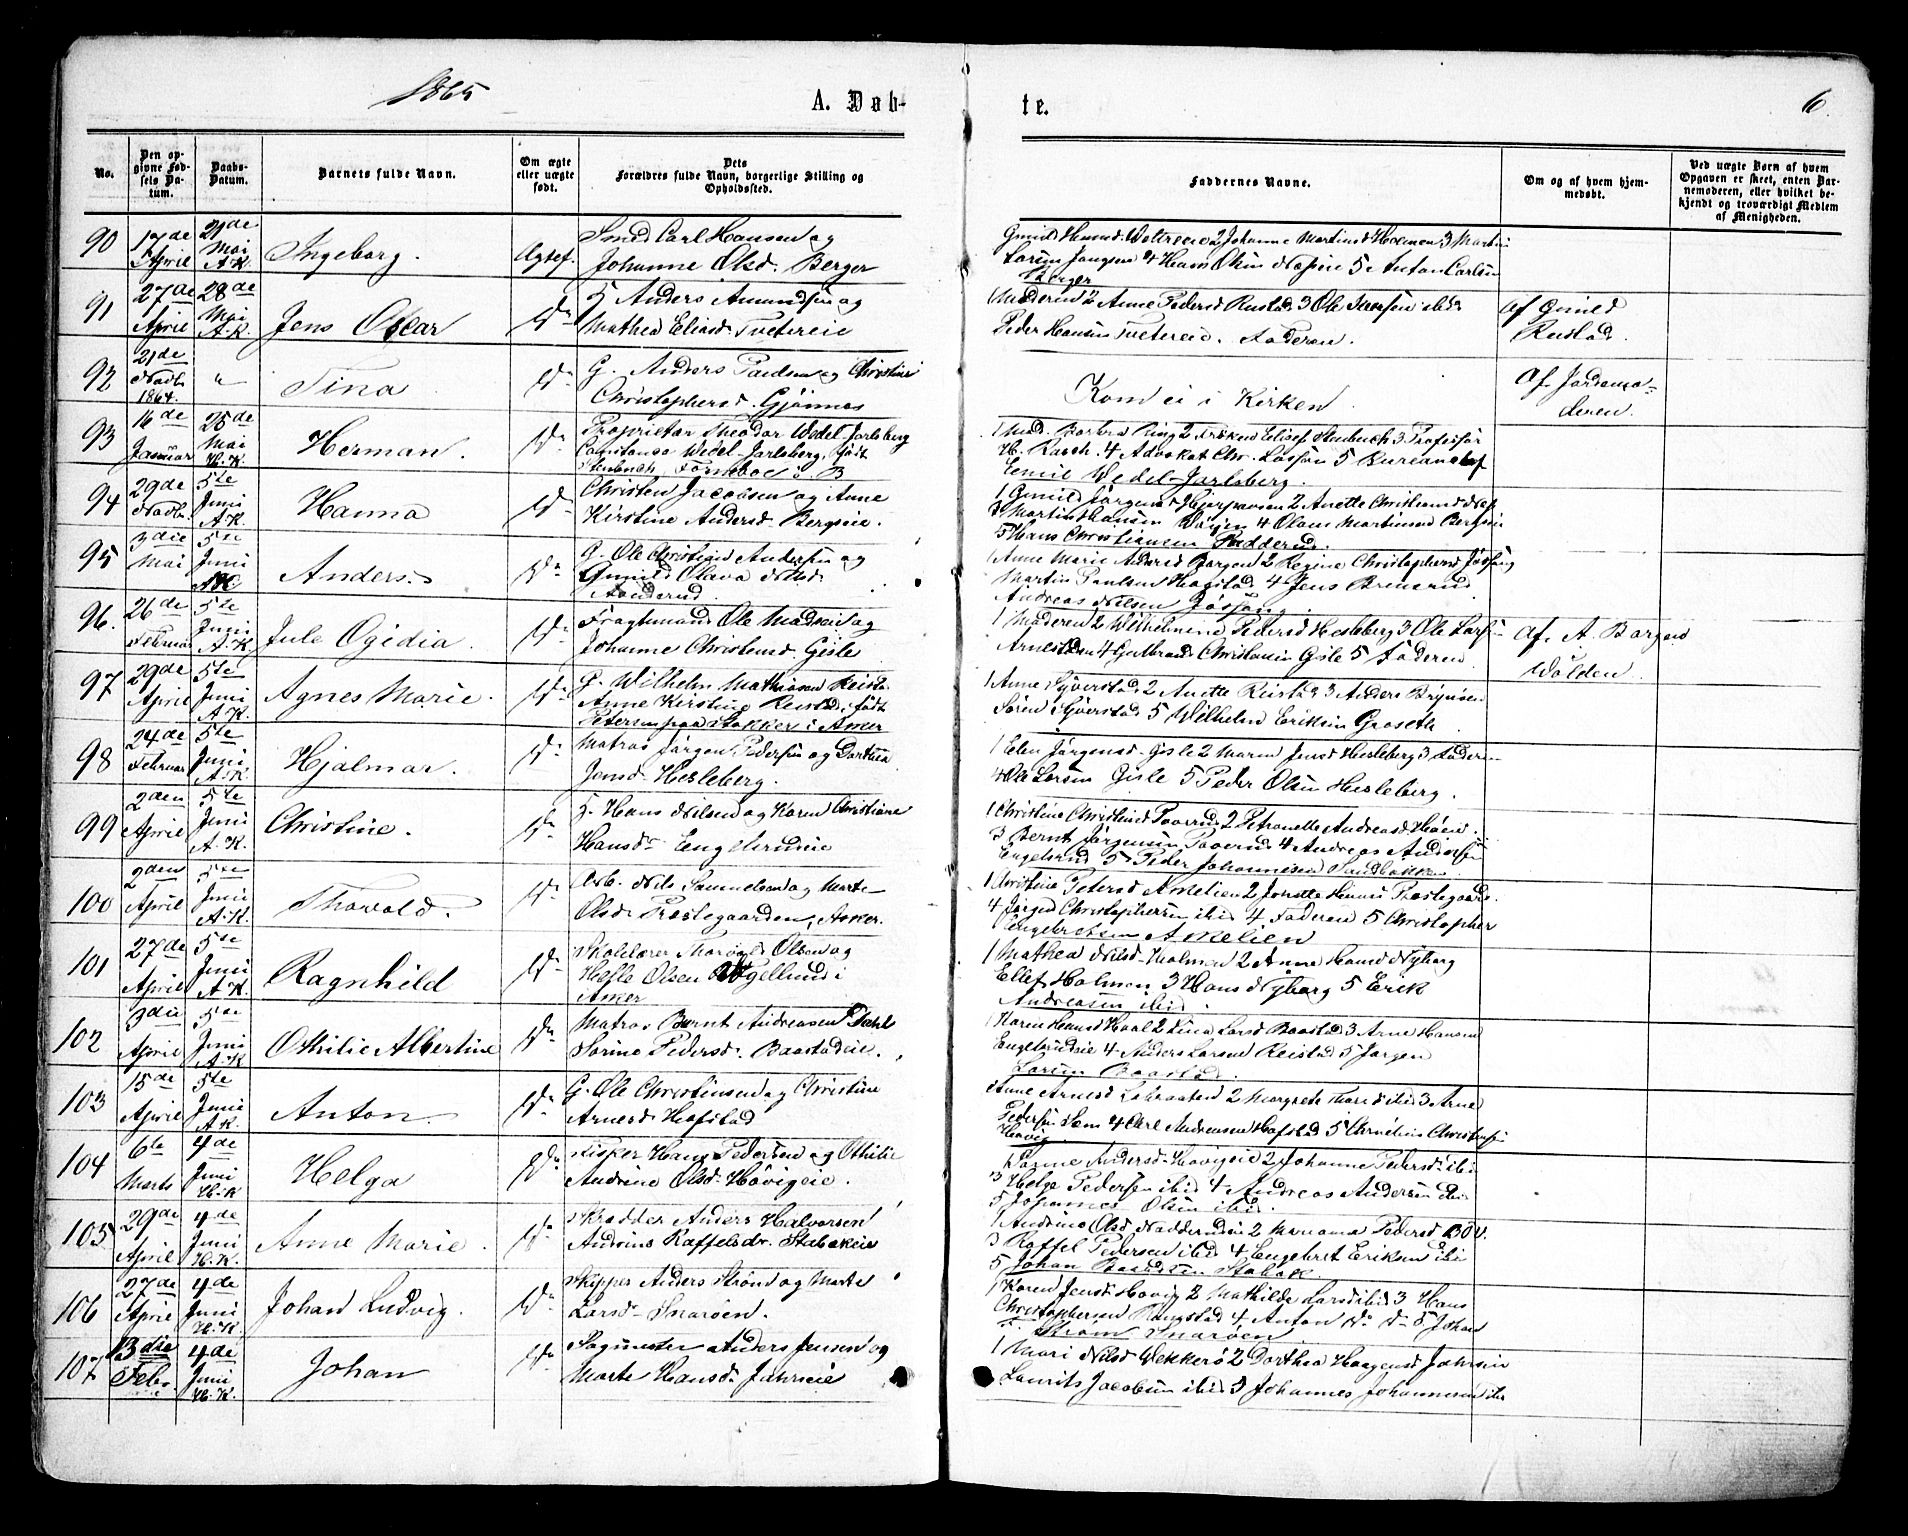 1865
A. Døb-
te.
6.
No.
Den op-
givne Fød-
sels Da-
tum.
Daabs-
Datum.
Barnets fulde Navn.
Om ægte
eller uægte
født.
Dets
Forældres fulde Navn, borgerlige Stilling og
Opholdssted.
Faddernes Navne.
Om og af hvem hjem-
medøbt.
Ved uægte Børn af hvem
Opgaven er skeet, enten Bar-
nemoderen, eller hvilket be-
kjendt og troværdigt Medlem
af Menigheden.
90
17de
April
21de
Mai
A.K.
Ingeborg.
Ægtef.
Smed Carl Hansen og
Johanne Olsd. Berger
2 Johanne Martinsd Holmen 3 Martin
4 Hans Olsen 5 Anton Carlsen
Berger
91
27de
April
28de
Mai
A.K.
Jens Oscar
Do
H Anders Amundsen og
Mathea Eliasd. Tveterеie
1 Moderen 2 Anne Pedersd Rustad 3 Ole ibid
Peder Hansen Tvetereie. Faderen.
af Gunild
Rustad.
92
21de
Novb.
1864.
"
Tina
Do
G. Anders Paulsen og Christine
Christophersd. Gjønnes
Kom ei i Kirken
af Jordemo-
deren.
93
16de
Januar
25de
Mai
H.K.
Herman.
Do
Proprietær Theodor Wedel Jarlsberg
Constance Wedel-Jarlsberg, født
Stenbuch, Forneboe i B
1 Mad. Barbra Ring 2 Frøken Elisef Stenbuch 3 Professor
H. Rasch. 4 Advokat Chr. 5 Bureauchef
Emil Wedel-Jarlsberg.
94
29de
Novb.
5te
Juni
A.K.
Hanna
Do
Christen Jacobsen og Anne
Kirstine Andersd. Bergseie.
1 Gunild Jørgensd 2 Anette Christiansd
3 Martin Hansen Borgen 4 Olaus Martinsen Bergseie
5 Hans Christiansen Rudderud.
95
3die
Mai
5te
Juni
A.K.
Anders.
Do
G. Ole Christian Andersen og
Gunild Olava Nilsd.
1 Anne Marie Andersd Borgen 2 Regine Christophersd
Martin Paulsen Hogstad 4 Jens Brenerud
Andreas Nilsen
96.
26de
Februar
5te
Juni
A.K.
Jule Ogidia.
Do
Fragtmand Ole Madsen og
Johanne Christensd Gisle
1 Moderen 2 Wilhelmine Pedersd Hesleberg 3 Ole Larsen
Arnestden 4 Gulbrand Christensen Gisle 5 Faderen
af A. Borgen
Wolden.
97
29de
April
5te
Juni
A.K.
Agnes Marie.
Do
G. Wilhelm Mathiasen Reista
Anne Kirstine Reistad, født
Petersen paa Slokker i Asker
1 Anne Sjøverstad 2 Anette Reistad 3 Anders Brynsen
Søren Sjøverstad 5 Wilhelm Eriksen Groseth
98
24de
Februar
5te
Juni
A.K.
Hjalmar.
Do
Matros Jørgen Pedersen og Dorthea
Jensd. Hesleberg.
1 Elen Jørgensd. Gisle 2 Maren Jensd Hesleberg 3 Faderen
4 Ole Larsen Gisle 5 Peder Olsen Hesleberg.
99
2den
April
5te
Juni
A.K.
Christine.
Do
H. Hans Nilsen og Karen Christiane
Hansd. Engelsrudeie
1 Christine Christiansd 2 Petronette Andreasd Høen.
3 Bernt Jørgensen 4 Andreas Andersen
Engelsrud 5 Peder Johannesen Sandbakken
100
2den
April
5te
Juni
A.K.
Thorvald.
Do
Arb. Nils Samuelsen og Marte
Olsd. Præstegaarden, Asker.
1 Christine Petersd Amelien 2 Jonette Hansd Præstegaard.
4 Jørgen Christophersen ibid 4 Faderen 5 Christopher
Engebretsen Amelien
101
27de
April
5te
Juni
A.K.
Ragnhild
Do
Skolelærer Olsen og
Olsen i
Asker
1 Mathea Nilsd Holmen 2 Anne Hansd Nyborg
Ellef Holmen 3 Hans Nyborg 5 Erik
Andreasen ibid
102
3die
April
5te
Juni
A.K.
Othilie Albertine
Do
Matros Bernt Andreasen Dahl
Sorine Pedersd. Baastadeie.
1 Karen Hansd 2 Lina Larsd Baastad 3 Arne Hansen
Engelsrudeie 4 Anders Larsen Reistad 5 Jørgen
Larsen Baastad.
103
15de
April
5te
Juni
A.K.
Anton.
Do
G. Ole Christensen og Christine
Arnesd. Hofstad
Anne Arnesd 2 Margrete ibid 3 Arne
Pedersen Sem 4 Carl Andreasen Hofstad 5 Cornelius Christensen
Høvig
104
6te
Marts
4de
Juni
H.K
Helga
Do
Fisker Hans Pedersen og Othilie
Andrine Olsd. Høvigeie.
Andersd. Høvigeie 2 Johanne Pedersd. ibid
3 Helge Pedersen ibid 4 Andreas Andersen ibid
5 Johannes Olsen ibid.
105
29de
April
4de
Juni
H.K.
Anne Marie.
Do
Skrædder Anders Halvorsen
Andrine Raffelsdr. Stabækeie
1 Andrine Olsd Nadderudeie 2 Mariana Pedersd
3 Raffel Pedersen ibid 4 Engebret Eriksen ibid
5 Johan Stabæk.
106
27de
April
4de
Juni
H.K.
Johan Ludvig.
Do
Skipper Anders Strøm og Marte
Larsd. Snarøen.
1 Karen Jensd Høvig 2 Mathilde Larsd ibid 3 Hans
Christophersen Ringstad 4 Anton Do Do 5 Johan
Strøm Snarøen
107
13die
Febr
4de
Juni
H.K.
Johan
Do
Sagmester Anders Jensen og
Marte Hansd. Jahrseie
1 Mari Nilsd Vekkerø 2 Dorthea Haagensd
Laurits Jacobsen ibid 5 Johannes Johannesen ibid